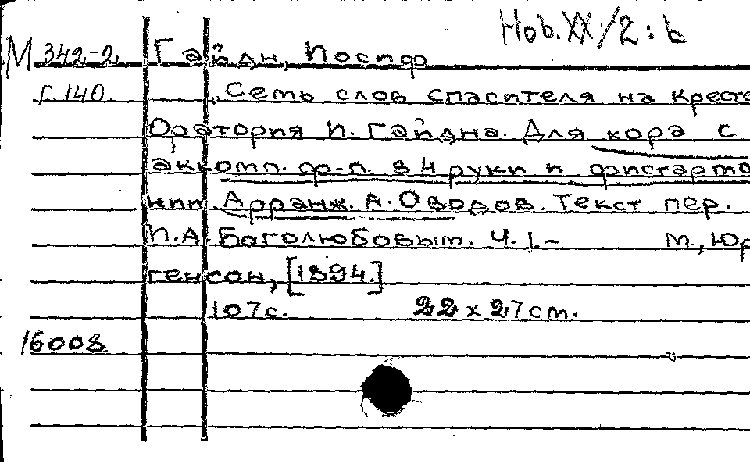 Hob. XX/2: b
М 342-2. Гайдн, Иосиф
Г 140. „Семь слов спасителя на кресте
Оратория И. Гайдна. Для хора с
аккомп. ф-п. в 4 руки и фисгармо
нии. Арранж. А. Оводов. Текст пер.
П.А. Боголюбовым. Ч. I.- М., Юр
генсон, [1894.]
107с. 22 x 27 cm.
16008